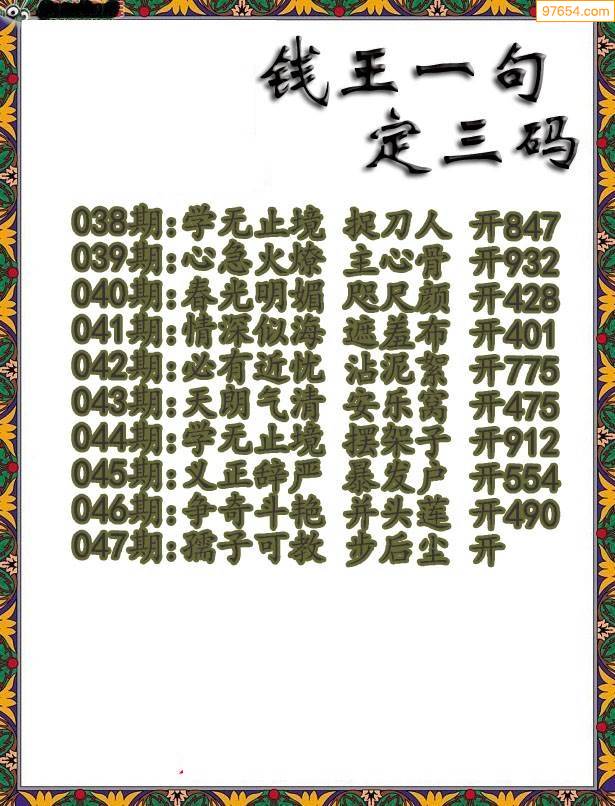 97654.com
钱王一句
定三码
038期:学无止境 捉刀人 开847
039期:心急火燎 主心骨 开932
040期:春光明媚 咫尺颜 开428
041期:情深似海 遮羞布 开401
042期:必有近忧 沾泥絮 开775
043期:天朗气清 安乐窝 开475
044期:学无止境 摆架子 开912
045期:义正辞严 暴发户 开554
046期:争奇斗艳 并头莲 开490
047期:孺子可教 步后尘 开